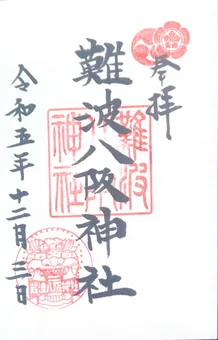 奉拝
難波八阪神社
難波
神社
令和五年十二月三日
難波八阪神社